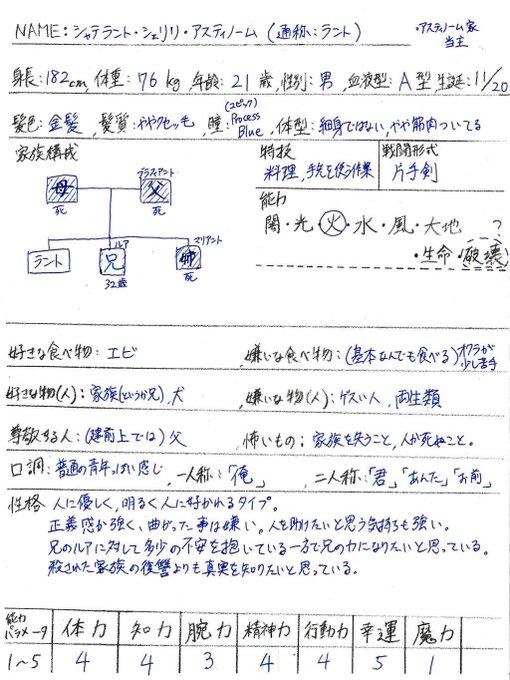 NAME: シャテラント・シェリリ・アスティノーム (通称:ラント)
・アスティノーム家
当主
身長:182cm, 体重: 76 kg, 年齢: 21 歳, 性別: 男, 血液型: A 型, 生誕: 11/20
髪色: 金髪, 髪質: ややクセッ毛, 瞳: Process Blue, 体型: 細身ではない, やや筋肉ついてる
家族構成
特技
戦闘形式
料理, 手先を使う作業
片手剣
母
死
プラスアント
父
死
能力
闇・光・火・水・風・大地
・生命・破壊
?
ラント
ルア
兄
32歳
マリアント
姉
死
好きな食べ物: エビ
嫌いな食べ物: (基本なんでも食べる) オクラが少し苦手
好きな物(人): 家族(というか兄), 犬
嫌いな物(人): ゲスい人, 両生類
尊敬する人: (建前上では) 父
怖いもの: 家族を失うこと, 人が死ぬこと。
口調: 普通の青年っぽい感じ, 一人称: 「俺」
二人称: 「君」「あんた」「お前」
性格 人に優しく, 明るく人に好かれるタイプ。
正義感が強く, 曲がった事は嫌い。人を助けたいと思う気持ちも強い。
兄のルアに対して多少の不安を抱いている一方で兄の力になりたいと思っている。
殺された家族の復讐よりも真実を知りたいと思っている。
能力パラメータ 体力 知力 腕力 精神力 行動力 幸運 魔力
1~5 4 4 3 4 4 5 1